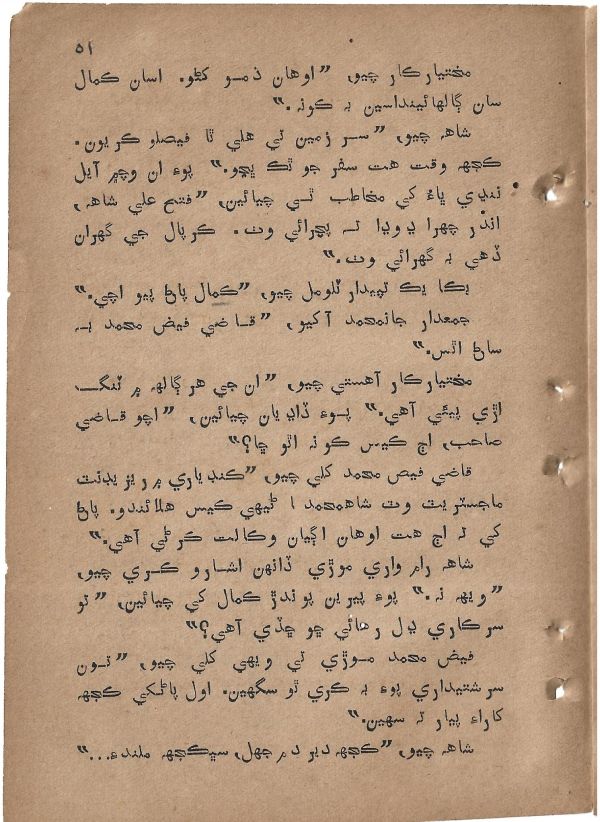 ٥١
مختيارڪار چيو، ”اوهان ذمو کڻو. اسان ڪمال
سان ڳالهائينداسين بہ ڪونہ.“
شاهہ چيو، ”سر زمين تي هلي ٿا فيصلو ڪريون.
ڪجهہ وقت هت سفر جو ٿڪ ڀڃو.“ پوءِ ان وچ۾ آيل
ننڍي ڀاءُ کي مخاطب ٿي چيائين، ”فتح علي شاهہ،
اندر چهرا ٻہ وڍا تہ پچرائي وٺ. ڪرپال جي گهران
ڏهي بہ گهرائي وٺ.“
يڪا يڪ تپيدار ٽلومل چيو، ”ڪمال پاڻ پيو اچي.“
جمعدار جانمحمد آکيو، ”قاضي فيض محمد بہ
ساڻ اٿس.“
مختيارڪار آهستي چيو، ”ان جي هر ڳالهہ ۾ ٽنگ
اڙي پيئي آهي.“ پوءِ ڏاڍيان چيائين، ”اچو قاضي
صاحب، اڄ ڪيس ڪونہ اٿو ڇا؟“
قاضي فيض محمد کلي چيو، ”ڪنڊياري ۾ ريزيڊنٽ
ماجسٽريٽ وٽ شاهمحمد ا ٿيهي ڪيس هلائيندو. پاڻ
کي تہ اڄ هت اوهان اڳيان وڪالت ڪرڻي آهي.“
شاهہ رام واري موڙي ڏانهن اشارو ڪري چيو،
”ويهہ نہ.“ پوءِ پيرين پوندڙ ڪمال کي چيائين، ”تو
سرڪاري ڍل رهائي ڇو ڇڏي آهي؟“
فيض محمد موڙي تي ويهي کلي چيو، ”تون
سرشتيداري پوءِ بہ ڪري ٿو سگهين. اول پاڻکي ڪجهہ
کاراءِ پيار تہ سهين.“
شاهہ چيو، ”ڪجهہ دير دم جهل، سڀڪجهہ ملندءِ...“